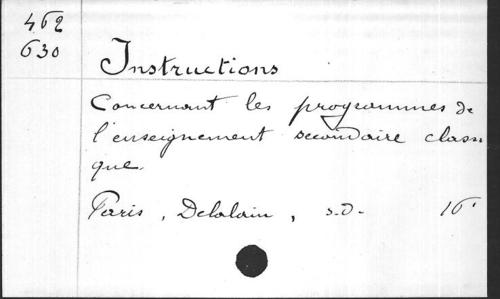 462
630
Instructions
Concernant les programmes de
l'enseignement secondaire classi
que.
Paris, Delalain, s.d. 16°